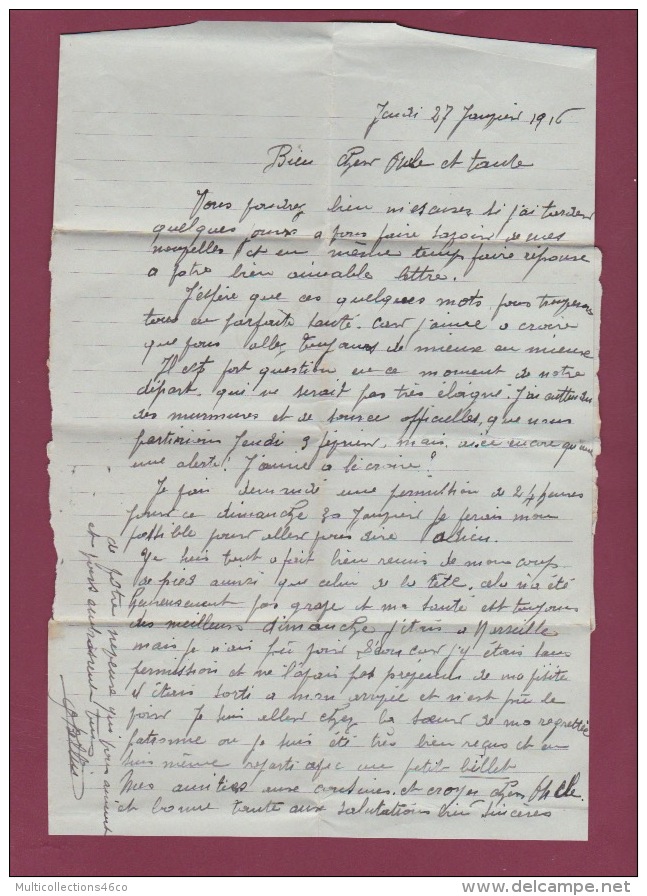 Jeudi 27 Janvier 1916
Bien cher Oncle et tante
Vous voudrez bien m'excuser si j'ai tarder
quelques jours a vous faire savoir de mes
nouvelles et en même temps faire réponse
a votre bien aimable lettre.
J'espère que ces quelques mots vous trouveront
tous en parfaite santé. car j'aime a croire
que vous allez toujours de mieux en mieux
Il est fort question en ce moment de notre
départ. qui ne serait pas très éloigné. J'ai entendu
des murmures et de source officielles, que nous
partirions Jeudi 3 février. mais, encore qu'une
une alerte! J'aime a le croire?
Je vais demandé une permission de 24 heures
pour ce dimanche 30 Janvier je ferais mon
possible pour aller vous dire adieu.
Je suis tout a fait bien remis de mon coup
de pied ainsi que celui de la tête, cela n'a été
heureusement pas grave et ma santé est toujours
des meilleurs dimanche j'étais a Marseille
mais je n'ais pu voir car j'y étais sans
permission et ne l'avais pas prévenus de ma visite
il était sorti a mon arrivée et n'est pu le
voir Je suis aller chez la sœur de ma regrettée
ou je suis été très bien reçus et en
suis même reparti avec un petit billet
Mes amitiés aux cousines. et croyez cher Oncle.
et bonne tante aux salutations bien sincères
de votre neveux qui vous aiment
et vous embrassent bien
Multicollections46co
delcampe.net